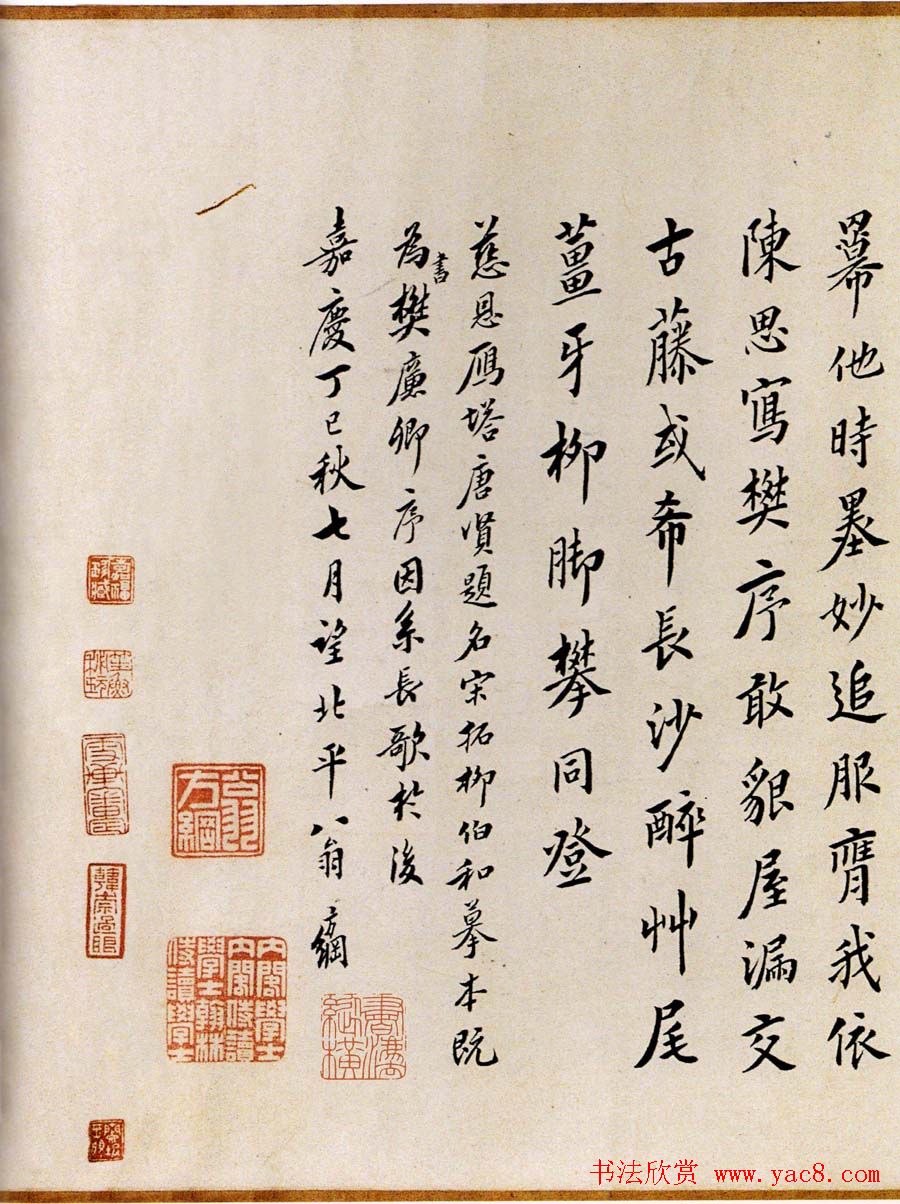 冪他時墨妙追服膺我依
陳思寫樊序敢貌屋漏交
古藤或希長沙醉艸尾
薑牙柳脚攀同登
慈恩鴈塔唐賢題名宋拓柳伯和摹本既
為書樊廉卿序因系長歌於後
嘉慶丁巳秋七月望北平翁方綱
翁方綱
內閣學士內閣侍讀學士翰林侍讀學士
韓崇過眼
书法欣赏 www.yac8.com